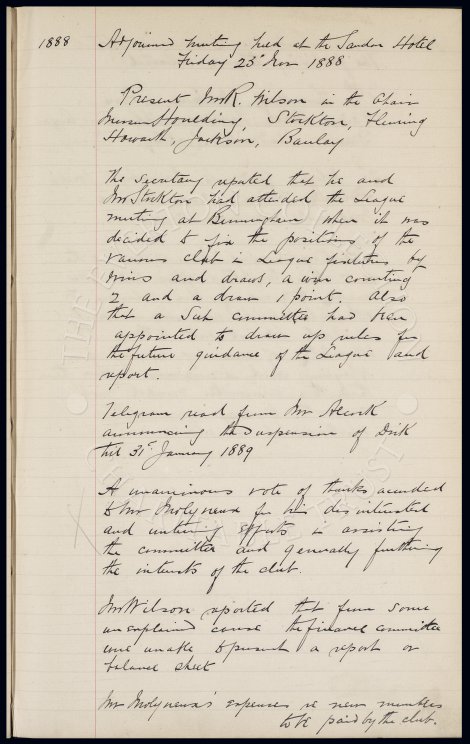 1888 Adjourned meeting held at the Sandon Hotel
Friday 23 Nov 1888
Present Mr R. Wilson in the Chair
Messrs Houlding, Stockton, Fleming
Howarth, Jackson, Barclay
The Secretary reported that he and
Mr Stockton had attended the League
meeting at Birmingham when it was
decided to fix the positions of the
various clubs in League fixtures by
wins and draws, a win counting
2 and a draw 1 point. Also
that a Sub committee had been
appointed to draw up rules for
the future guidance of the League and
report.
Telegram read from Mr Alcock
announcing the Suspension of Dick
till 31st January 1889
A unanimous vote of thanks accorded
to Mr Molyneux for his disinterested
and untiring efforts in assisting
the committee and generally furthering
the interests of the club.
Mr Wilson reported that from some
unexplained cause the finance committee
were unable to present a report or
balance sheet
Mr Molyneux's expenses re new members
to be paid by the club.